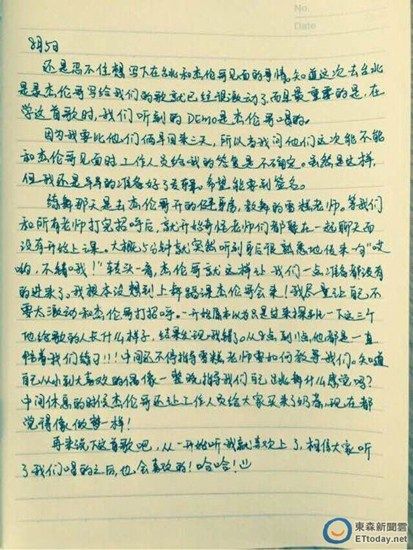 No.
Date
8月5日
还是忍不住想写下在台北和杰伦哥见面的事情。知道这次去台北
是录杰伦哥写给我们的歌就已经很激动了,而且最重要的是,在
学这首歌时,我们听到的DEMO是杰伦哥唱的。
因为我要比他们俩早回来三天,所以当我问他们这次能不能
和杰伦哥见面时工作人员给我的答复是不确定。虽然是这样,
但我还是早早的准备好了专辑。希望能要到签名。
练舞那天是去杰伦哥开的 教舞的
和所有老师打完招呼后,就开始 们都坐在一起聊天而
没有开始上课。大概5分钟就突然听到身后很熟悉地传来句"哎
哟,不错哦!"转头一看,杰伦哥就这样让我们一点准备都没有
的进来了。我根本没想到上舞蹈课杰伦哥会来!我尽量让自己不
要太激动和杰伦哥打招呼。一开始原本以为只是过来探班 一下这三个
他给歌的人长什么样子,结果发现,我错了。从 点到 点,他都是一直
陪着我们练习!!!中间还不停指导 老师要如何教导我们。知道
自己从小到大喜欢的偶像一整晚指导我们自己跳舞什么感觉吗?
中间休息的时候杰伦哥还让工作人员给大家买来了奶茶,现在都
觉得像做梦一样!
再来说下这首歌吧,从一开始听我就喜欢上了,相信大家听
了我们唱的之后,也会喜欢的!哈哈!
東森新聞雲
ETtoday.net